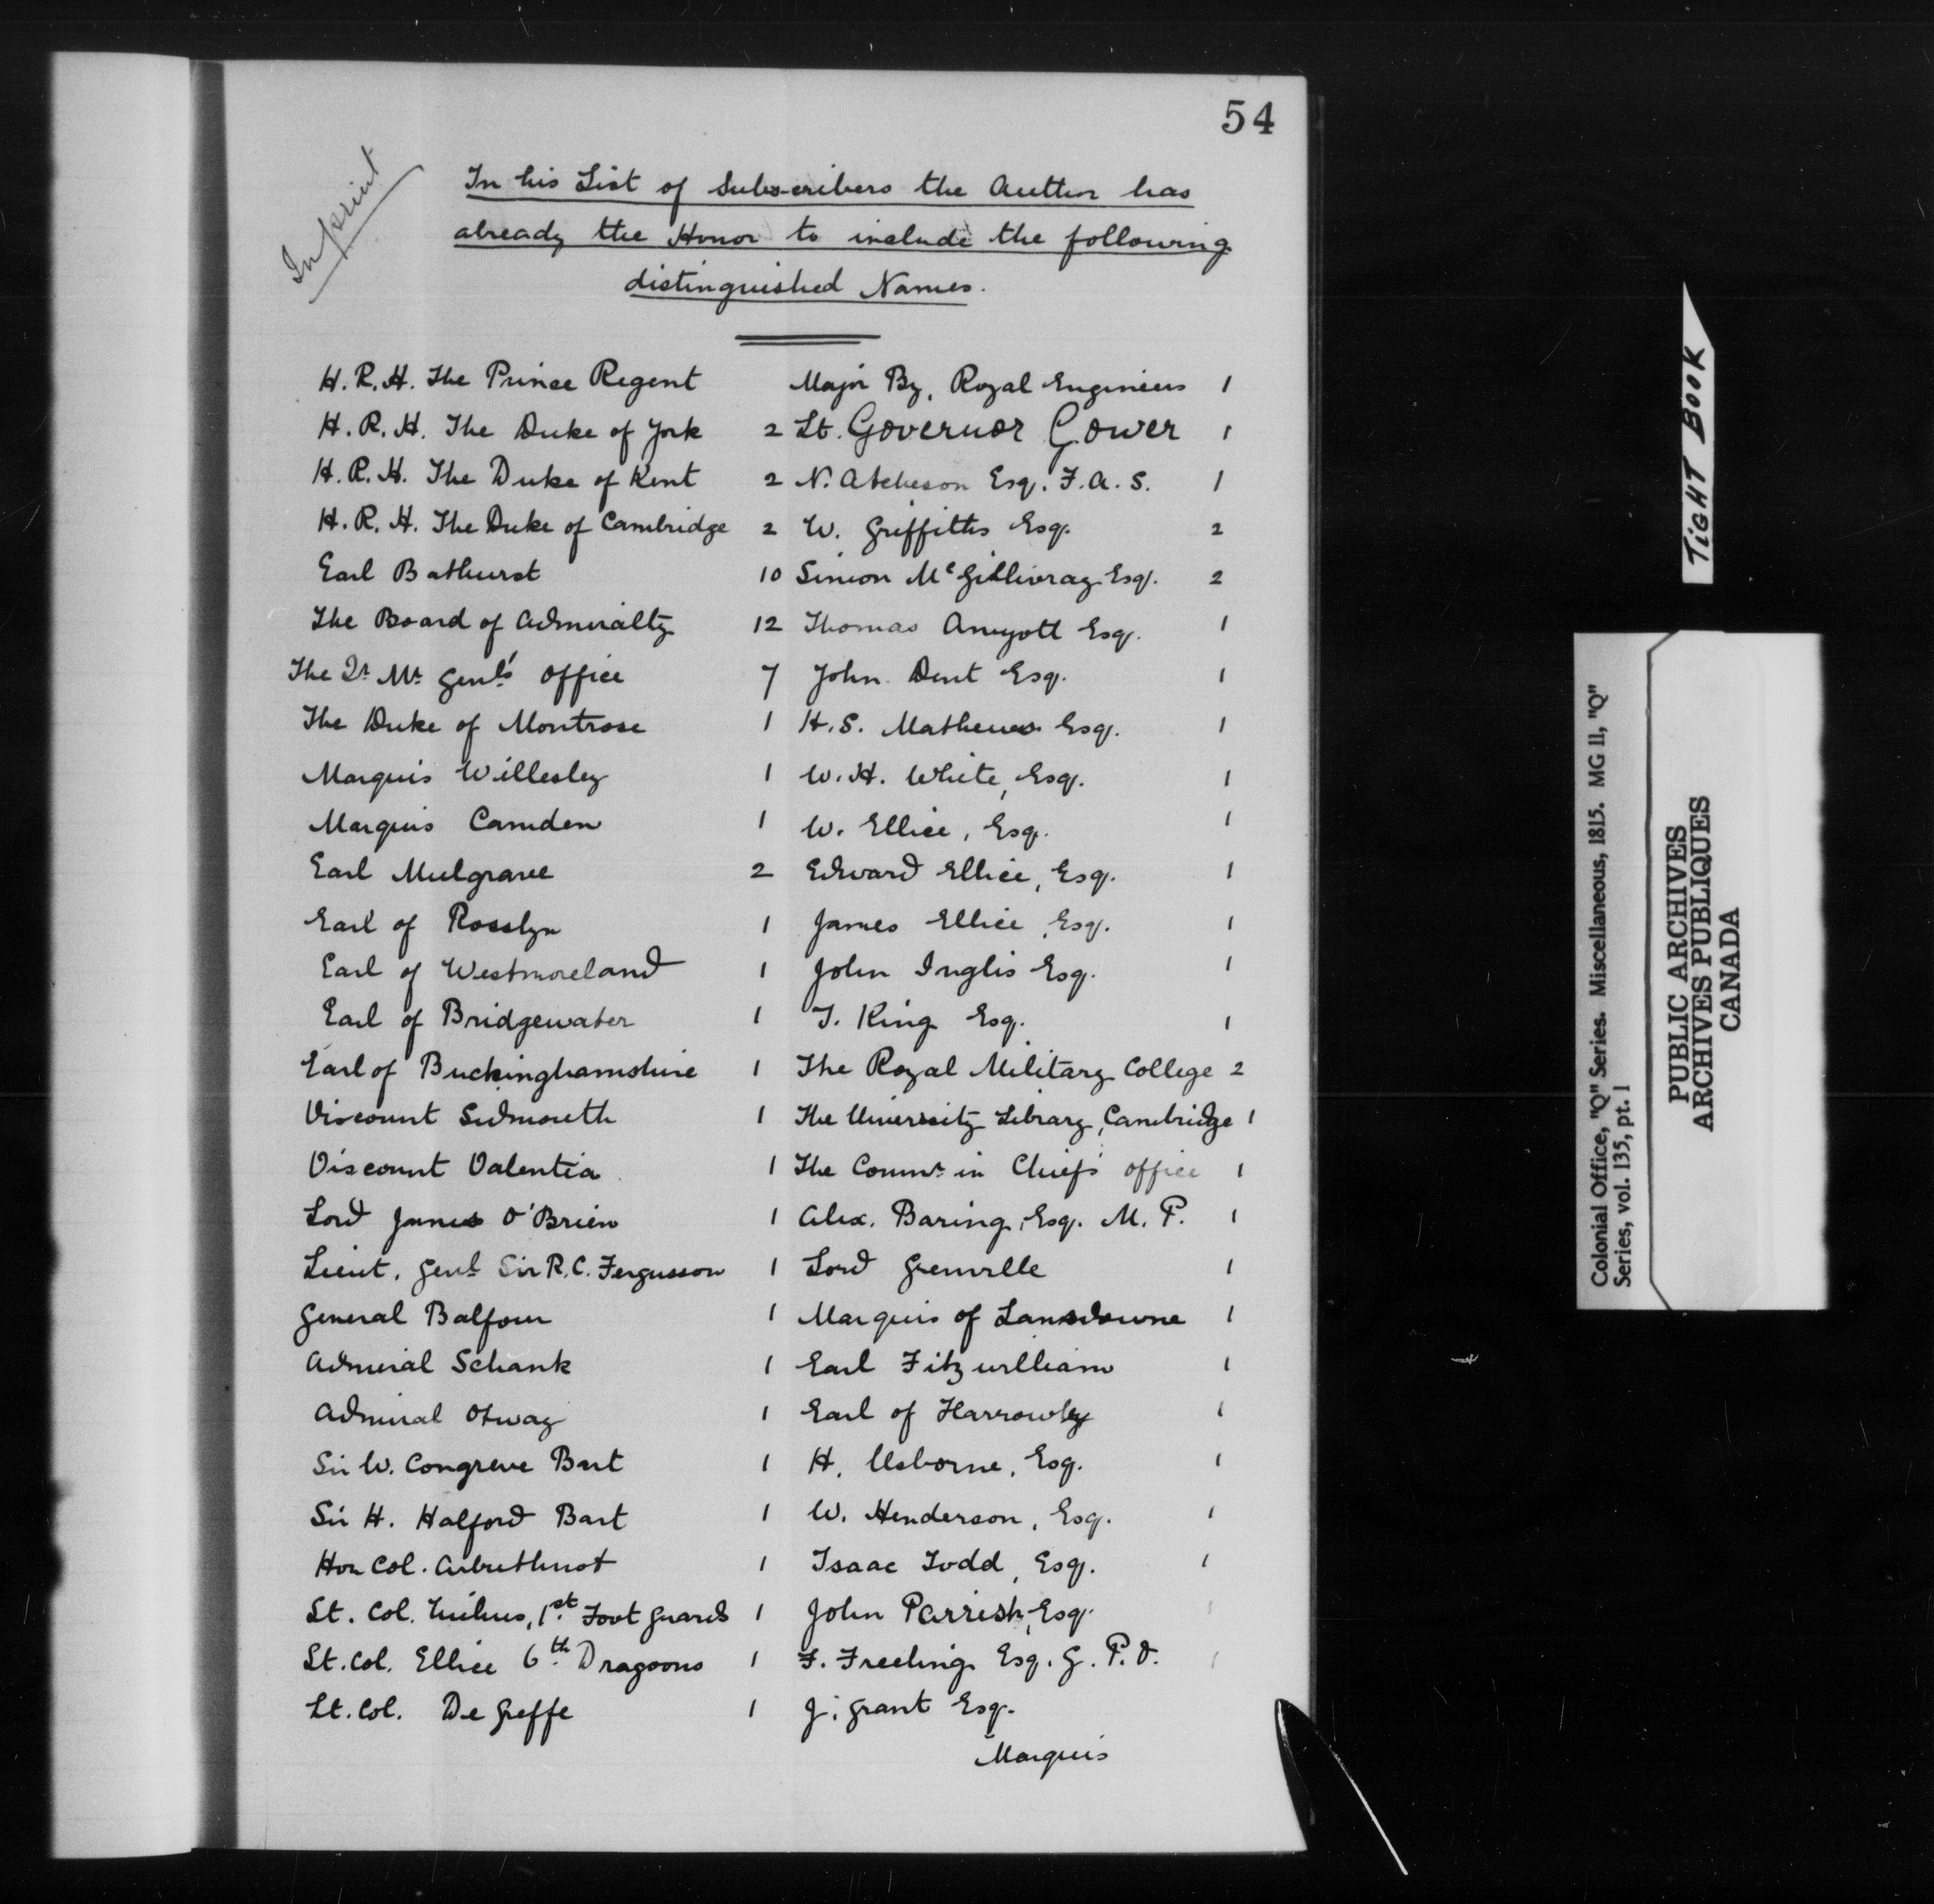 54
In print
In his List of Subscribers the Author has
already the Honor to include the following
distinguished Names.
H. R. H. The Prince Regent
H. R. H. The Duke of York 2
H. R. H. The Duke of Kent 2
H. R. H. The Duke of Cambridge 2
Earl Bathurst 10
The Board of Admiralty 12
The Qr. Mr. Genl's Office 7
The Duke of Montrose 1
Marquis Willesley 1
Marquis Camden 1
Earl Mulgrave 2
Earl of Rosslyn 1
Earl of Westmoreland 1
Earl of Bridgewater 1
Earl of Buckinghamshire 1
Viscount Sidmouth 1
Viscount Valentia 1
Lord James O'Brien 1
Lieut. Genl. Sir R. C. Fergusson 1
General Balfour 1
Admiral Schank 1
Admiral Otway 1
Sir W. Congreve Bart 1
Sir H. Halford Bart 1
Hon Col. Arbuthnot 1
Lt. Col. 1st Foot Guards 1
Lt. Col. Ellice 6th Dragoons 1
Lt. Col. De Greffe 1
Major By, Royal Engineers 1
Lt. Governor Gower 1
N. Atcheson Esq. F. A. S. 1
W. Griffiths Esq. 2
Simon McGillivray Esq. 2
Thomas Amyott Esq. 1
John Dent Esq. 1
H. S. Mathews Esq. 1
W. H. White, Esq. 1
W. Ellice, Esq. 1
Edward Ellice, Esq. 1
James Ellice, Esq. 1
John Inglis Esq. 1
T. King Esq. 1
The Royal Military College 2
The University Library, Cambridge 1
The Commr. in Chief's office 1
Alex. Baring, Esq. M. P. 1
Lord Grenville 1
Marquis of Lansdowne 1
Earl Fitzwilliam 1
Earl of Harrowby 1
H. Usborne, Esq. 1
W. Henderson, Esq. 1
Isaac Todd, Esq. 1
John Parrish, Esq. 1
F. Freeling Esq. G. P. O. 1
J. Grant Esq.
Marquis
TIGHT BOOK
Colonial Office, "Q" Series. Miscellaneous, 1815. MG 11, "Q"
Series, vol. 135, pt. 1
PUBLIC ARCHIVES
ARCHIVES PUBLIQUES
CANADA